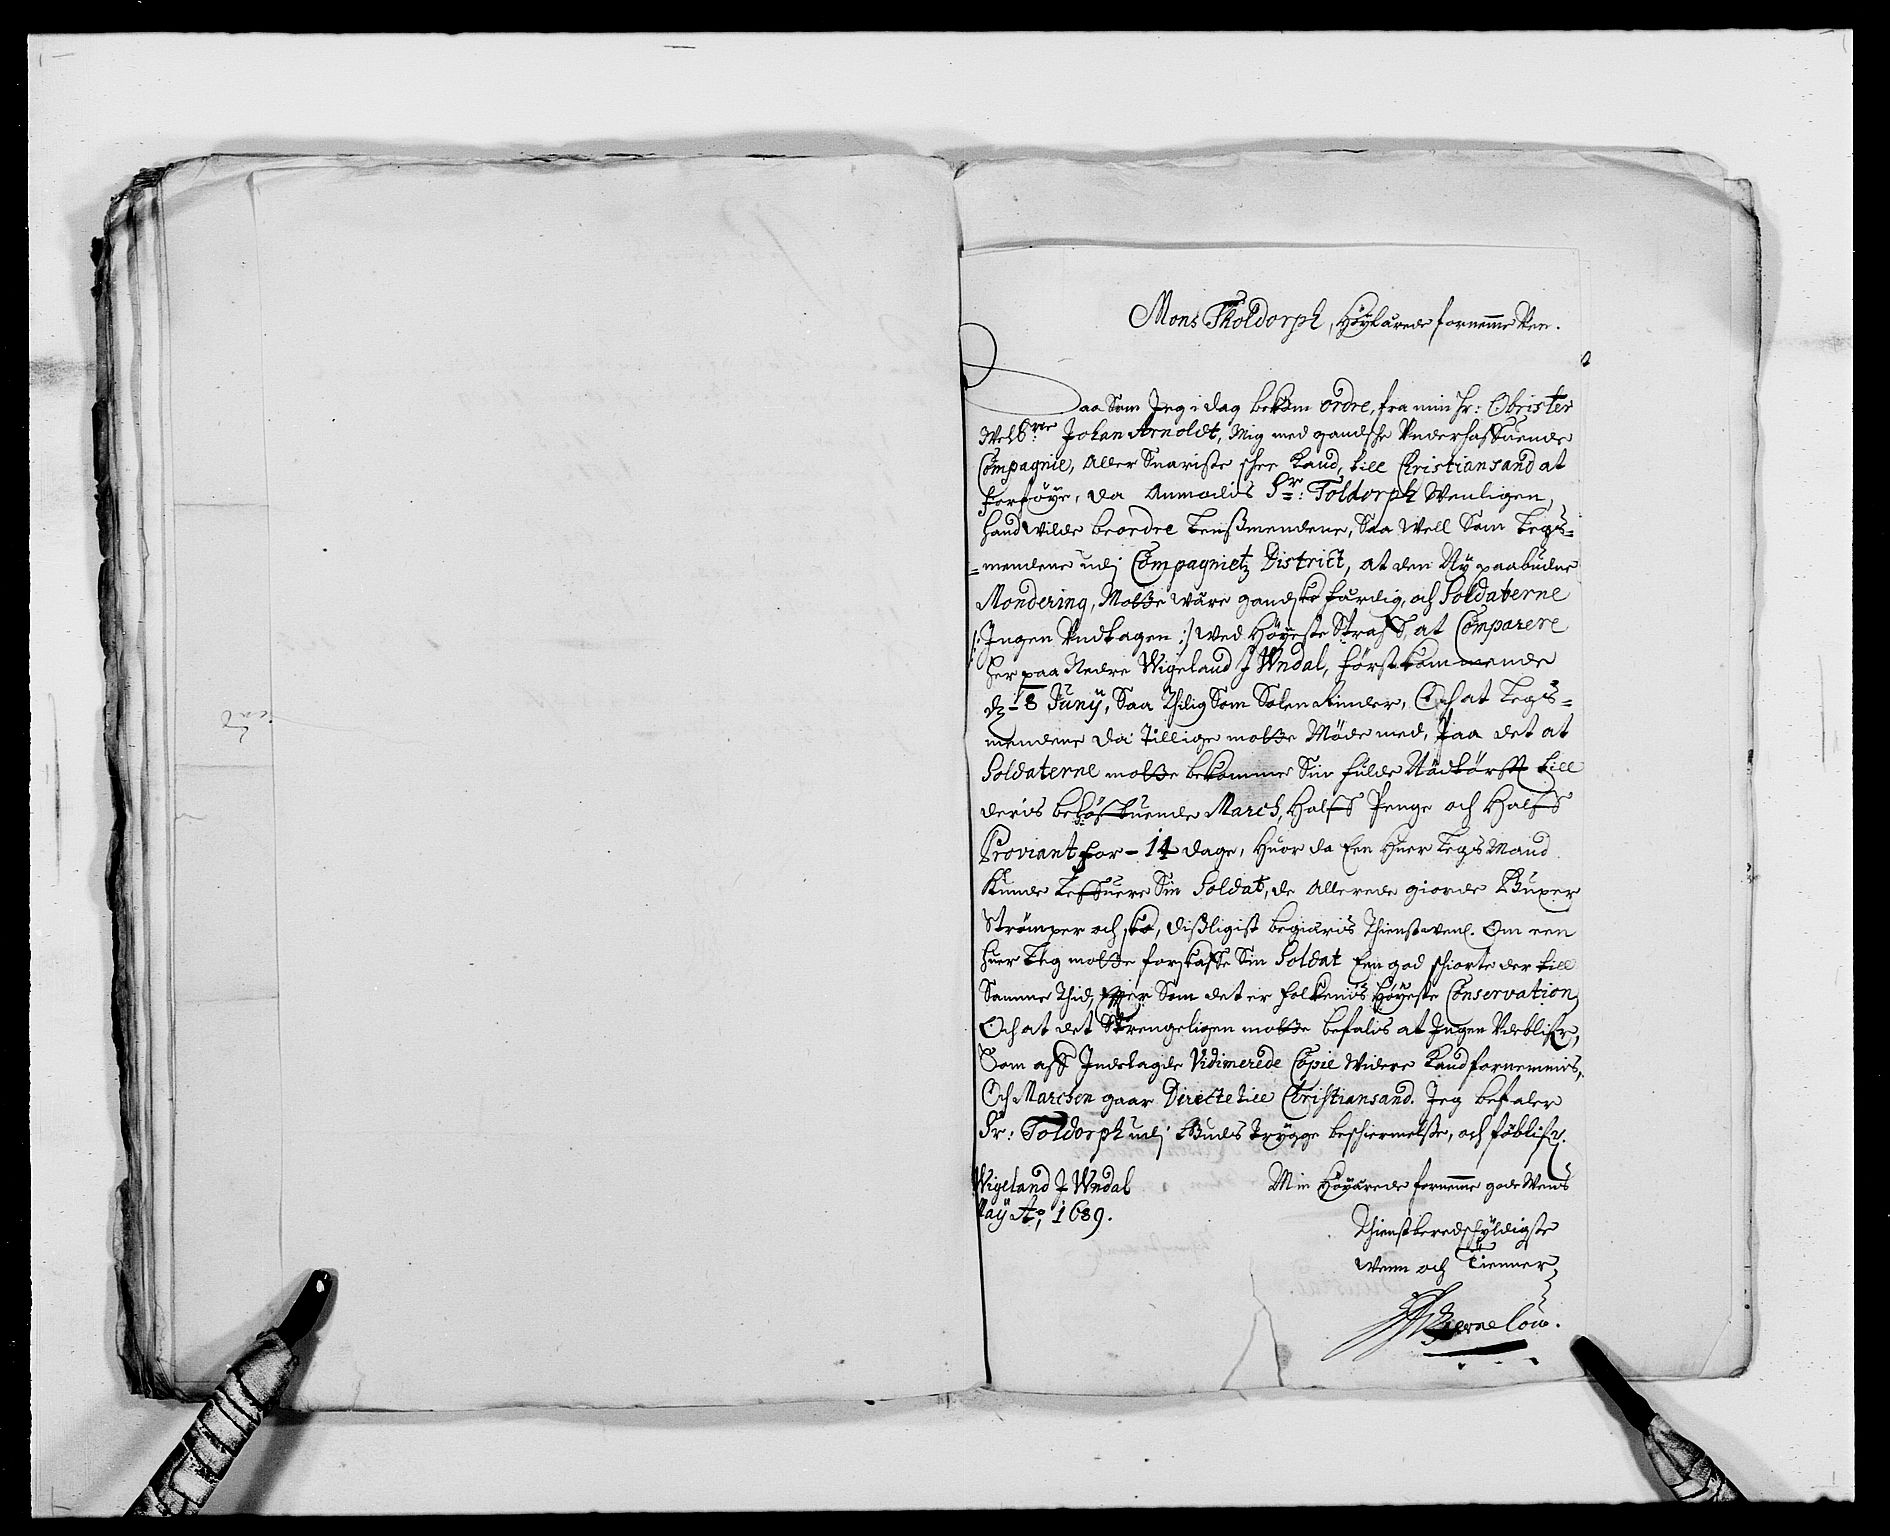 Mons Tholdorph, Høytærede fornemme Ven.
Saa Som Jeg i dag bekom ordre, fra min Hr: Obrister
Welb:ne Johan Arnoldt, Mig med gandsche Underhaffuende
Compagnie, Aller Snariste schee kand, till Christiansand at
forføye, da Anmodis Sr: Toldorph Wenligen,
hand wilde beordre Lensßmendene, Saa well Som Legs=
=mendene udj Compagnietz District, at den Ny paabudne
Mondering, Motte være gandske færdig, och Soldaterne
/: Ingen Undtagen :/ wed Høyeste Straff, at Comparere
her paa Nedre Wigeland J Undal, førstkommende
dz 8 Junij, Saa Thilig Som Solen Rinder, Och at Legs=
mendene da Tillige motte Møde med, Paa det at
Soldaterne motte bekomme Sin fulde Nødtørfft till
deris behøffuende March, Halff Penge och Halff
Proviant for - 14 dage, Huor da Een Huer Legs Mand
Kunde Leffuere Sin Soldat, de Allerede giorde Buxer
Strømper och sko, dißligist begiæris Thienstwenl. Om een
huer Leg motte forskaffe Sin Soldat Een god schiorte der till
Samme Thid, efftter Som det er folkenis Høyeste Conservation,
Och at det Strengeligen motte befalis at Ingen Udeblifr,
Som aff Indelagde Vidimerede Copie Widere kand fornemmis,
Och Marchen gaar Directe till Christiansand. Jeg befaler
Sr: Toldorph udj Guds Trygge beschiermelße, ochføblifr.
Wigeland J Undal
May Ao, 1689.
Min Høyærede fornemme gode Wens
Thienstberedschyldigste
Wenn och Tienner
Biernelow.